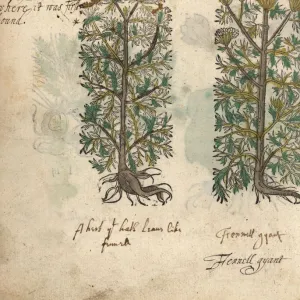 where it was fir
ound.
A herb yt hath leaves like
fennell
Fennell gyant
Fennell gyant